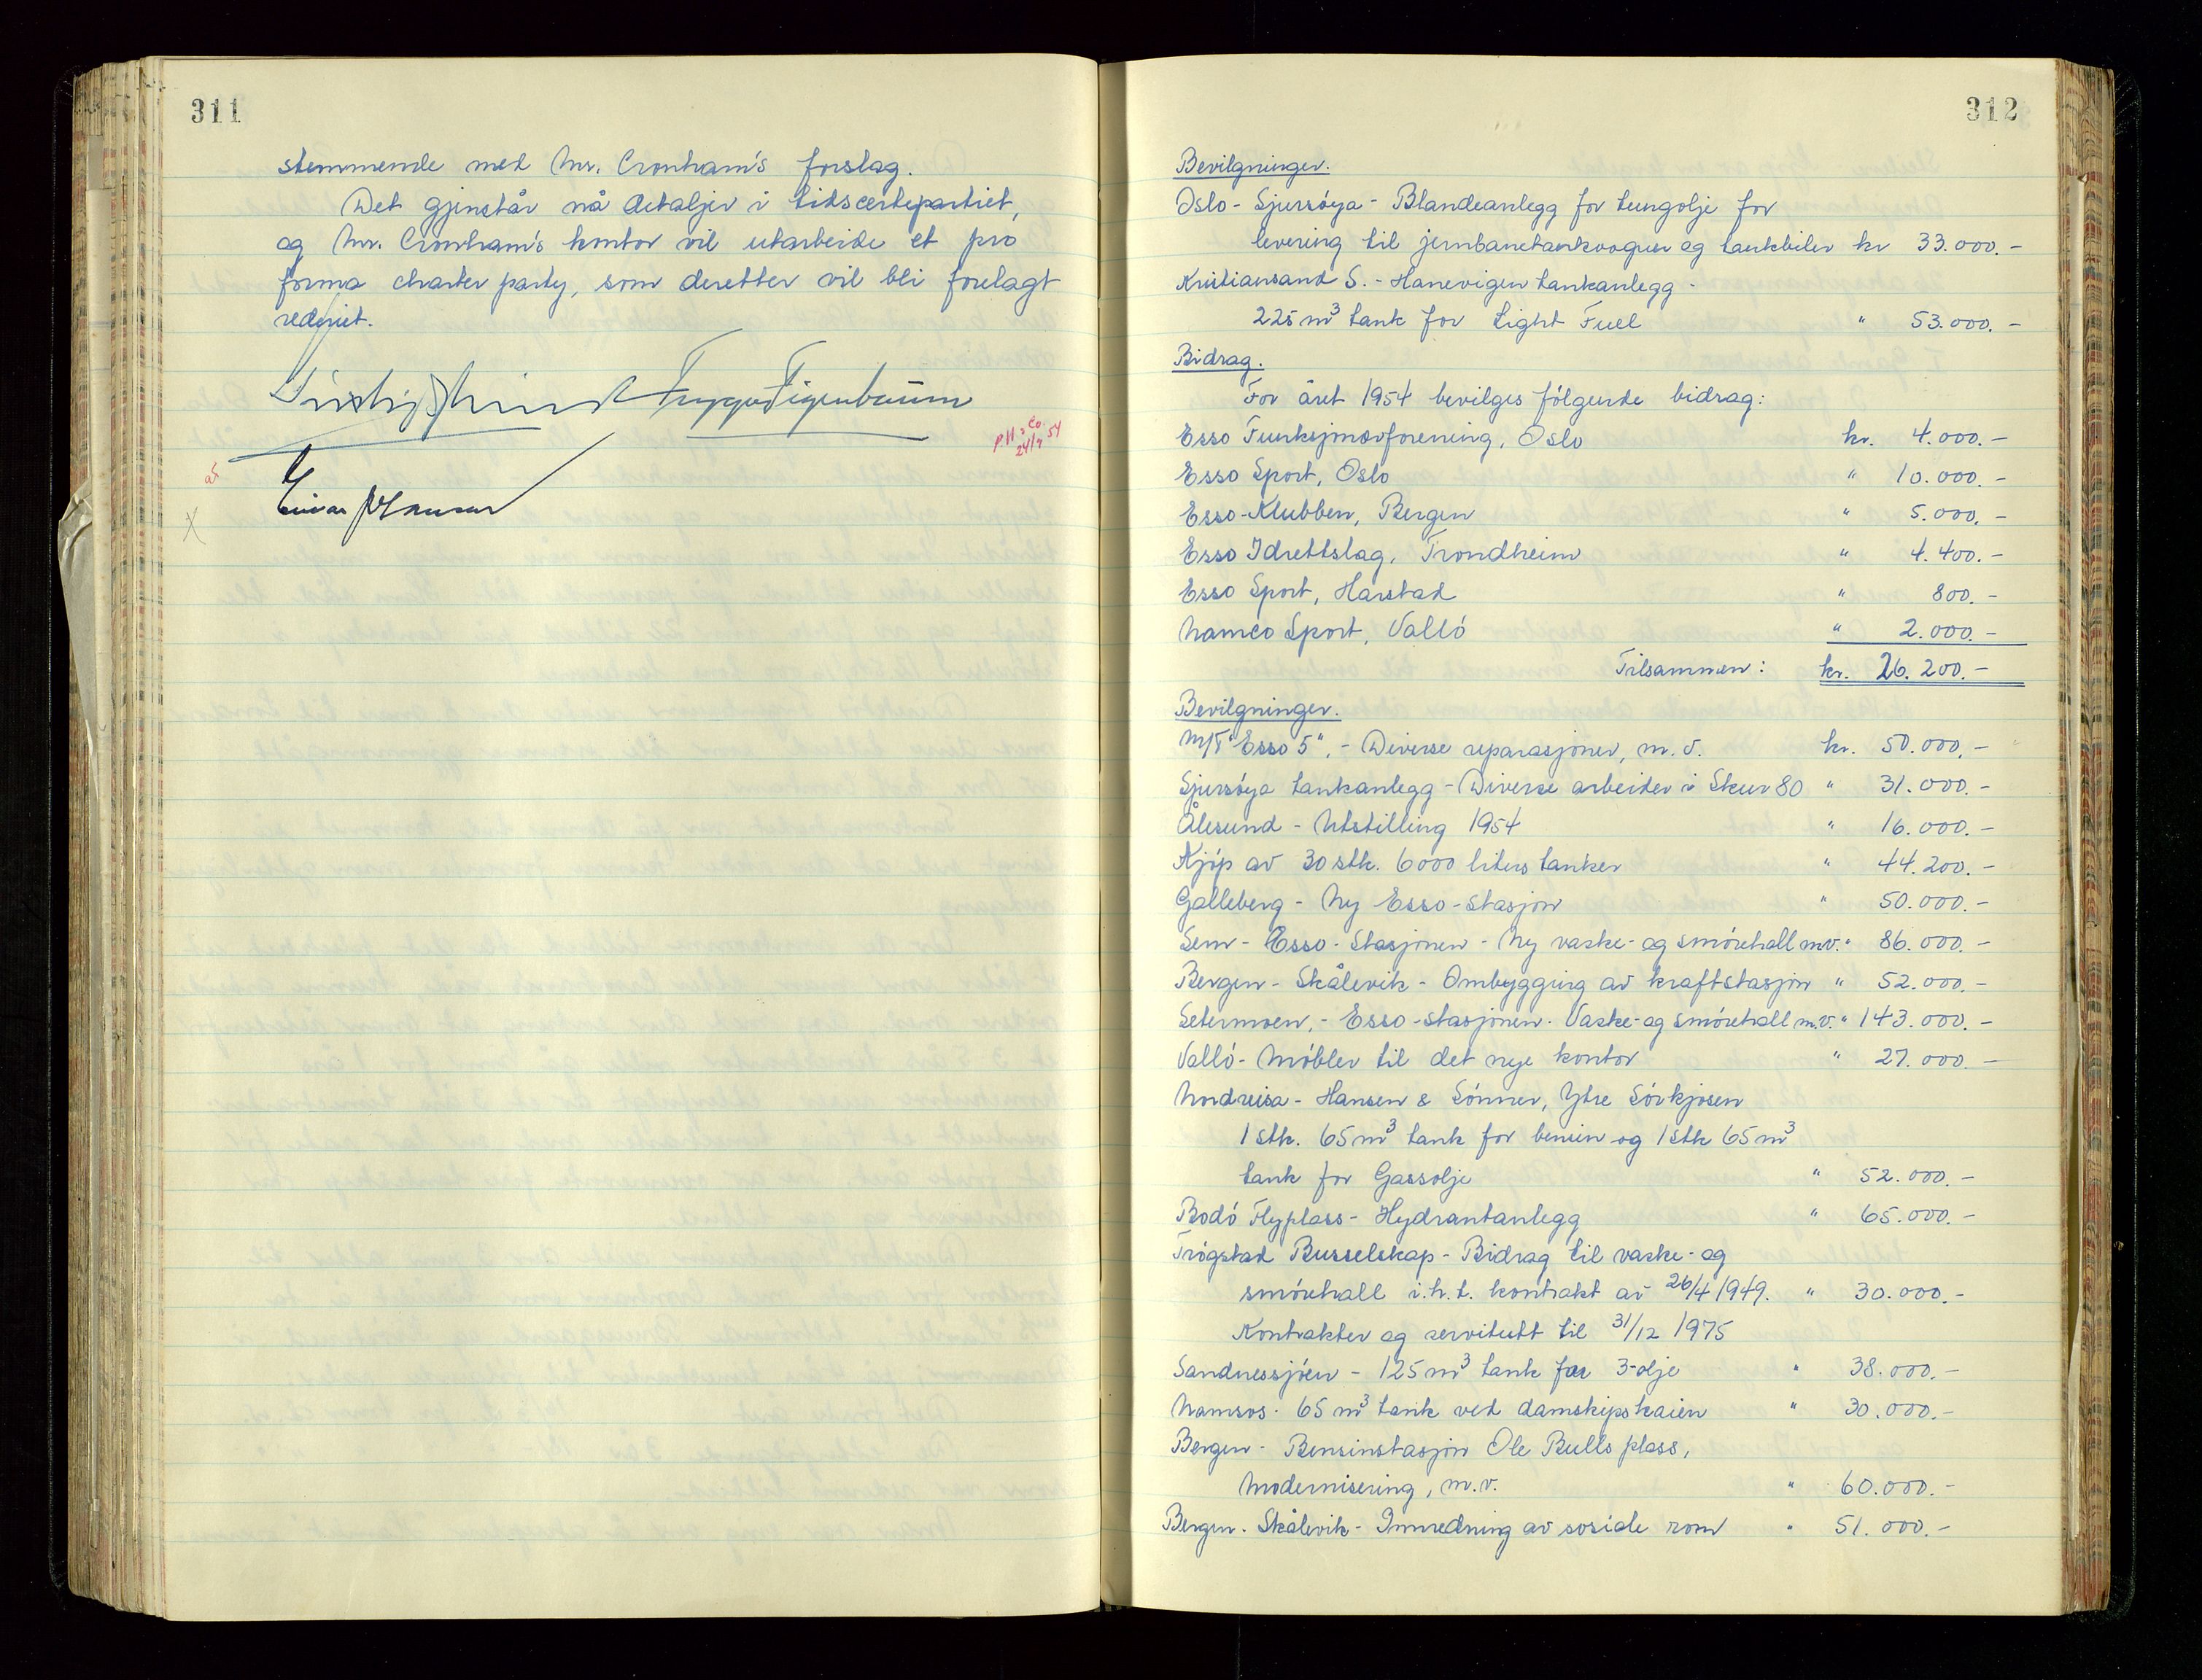 311
stemmende med Mr. Cronham's forslag.
Det gjenstår nå detaljer i tidscertepartiet,
og Mr. Cronham's kontor vil utarbeide et pro
forma charter party, som deretter vil bli forelagt
rederiet.
Trygve Figenbaum
24/9 54
Einar
312
Bevilgninger.
Oslo - Sjursöya - Blandeanlegg for tungolje for
levering til jernbanetankvogner og tankbiler kr 33.000.-
Kristiansand S. - Hanevigen tankanlegg -
225 m³ tank for Light Fuel " 53.000.-
Bidrag.
For året 1954 bevilges fölgende bidrag:
Esso Funksjonærforening, Oslo kr. 4.000.-
Esso Sport, Oslo " 10.000.-
Esso-Klubben, Bergen " 5.000.-
Esso Idrettslag, Trondheim " 4.400.-
Esso Sport, Harstad " 800.-
Namco Sport, Vallö " 2.000.-
Tilsammen: kr. 26.200.-
Bevilgninger.
M/T "Esso 5", - Diverse reparasjoner, m.v. kr. 50.000.-
Sjursöya tankanlegg - Diverse arbeider i Skur 80 " 31.000.-
Ålesund - Utstilling 1954 " 16.000.-
Kjöp av 30 stk. 6000 liters tanker " 44.200.-
Galleberg - Ny Esso-stasjon " 50.000.-
Sem - Esso-Stasjonen - Ny vaske- og smörehall m.v. " 86.000.-
Bergen - Skålevik - Ombygging av kraftstasjon " 52.000.-
Setermoen, - Esso-stasjonen. Vaske- og smörehall m.v. " 143.000.-
Vallö - Möbler til det nye kontor " 27.000.-
Nordreisa - Hansen & Sönner, Ytre Sörkjosen
1 stk. 65 m³ tank for bensin og 1 stk 65 m³
tank for Gassolje " 52.000.-
Bodö Flyplass - Hydrantanlegg " 65.000.-
Trögstad Busselskap - Bidrag til vaske- og
smörehall i.h.t. kontrakt av 26/4 1949. " 30.000.-
Kontrakter og servitutt til 31/12 1975
Sandnessjöen - 125 m³ tank for 3-olje " 38.000.-
Namsos - 65 m³ tank ved damskipskaien " 30.000.-
Bergen - Bensinstasjon Ole Bulls plass,
Modernisering, m.v. " 60.000.-
Bergen. Skålevik - Innredning av sosiale rom " 51.000.-